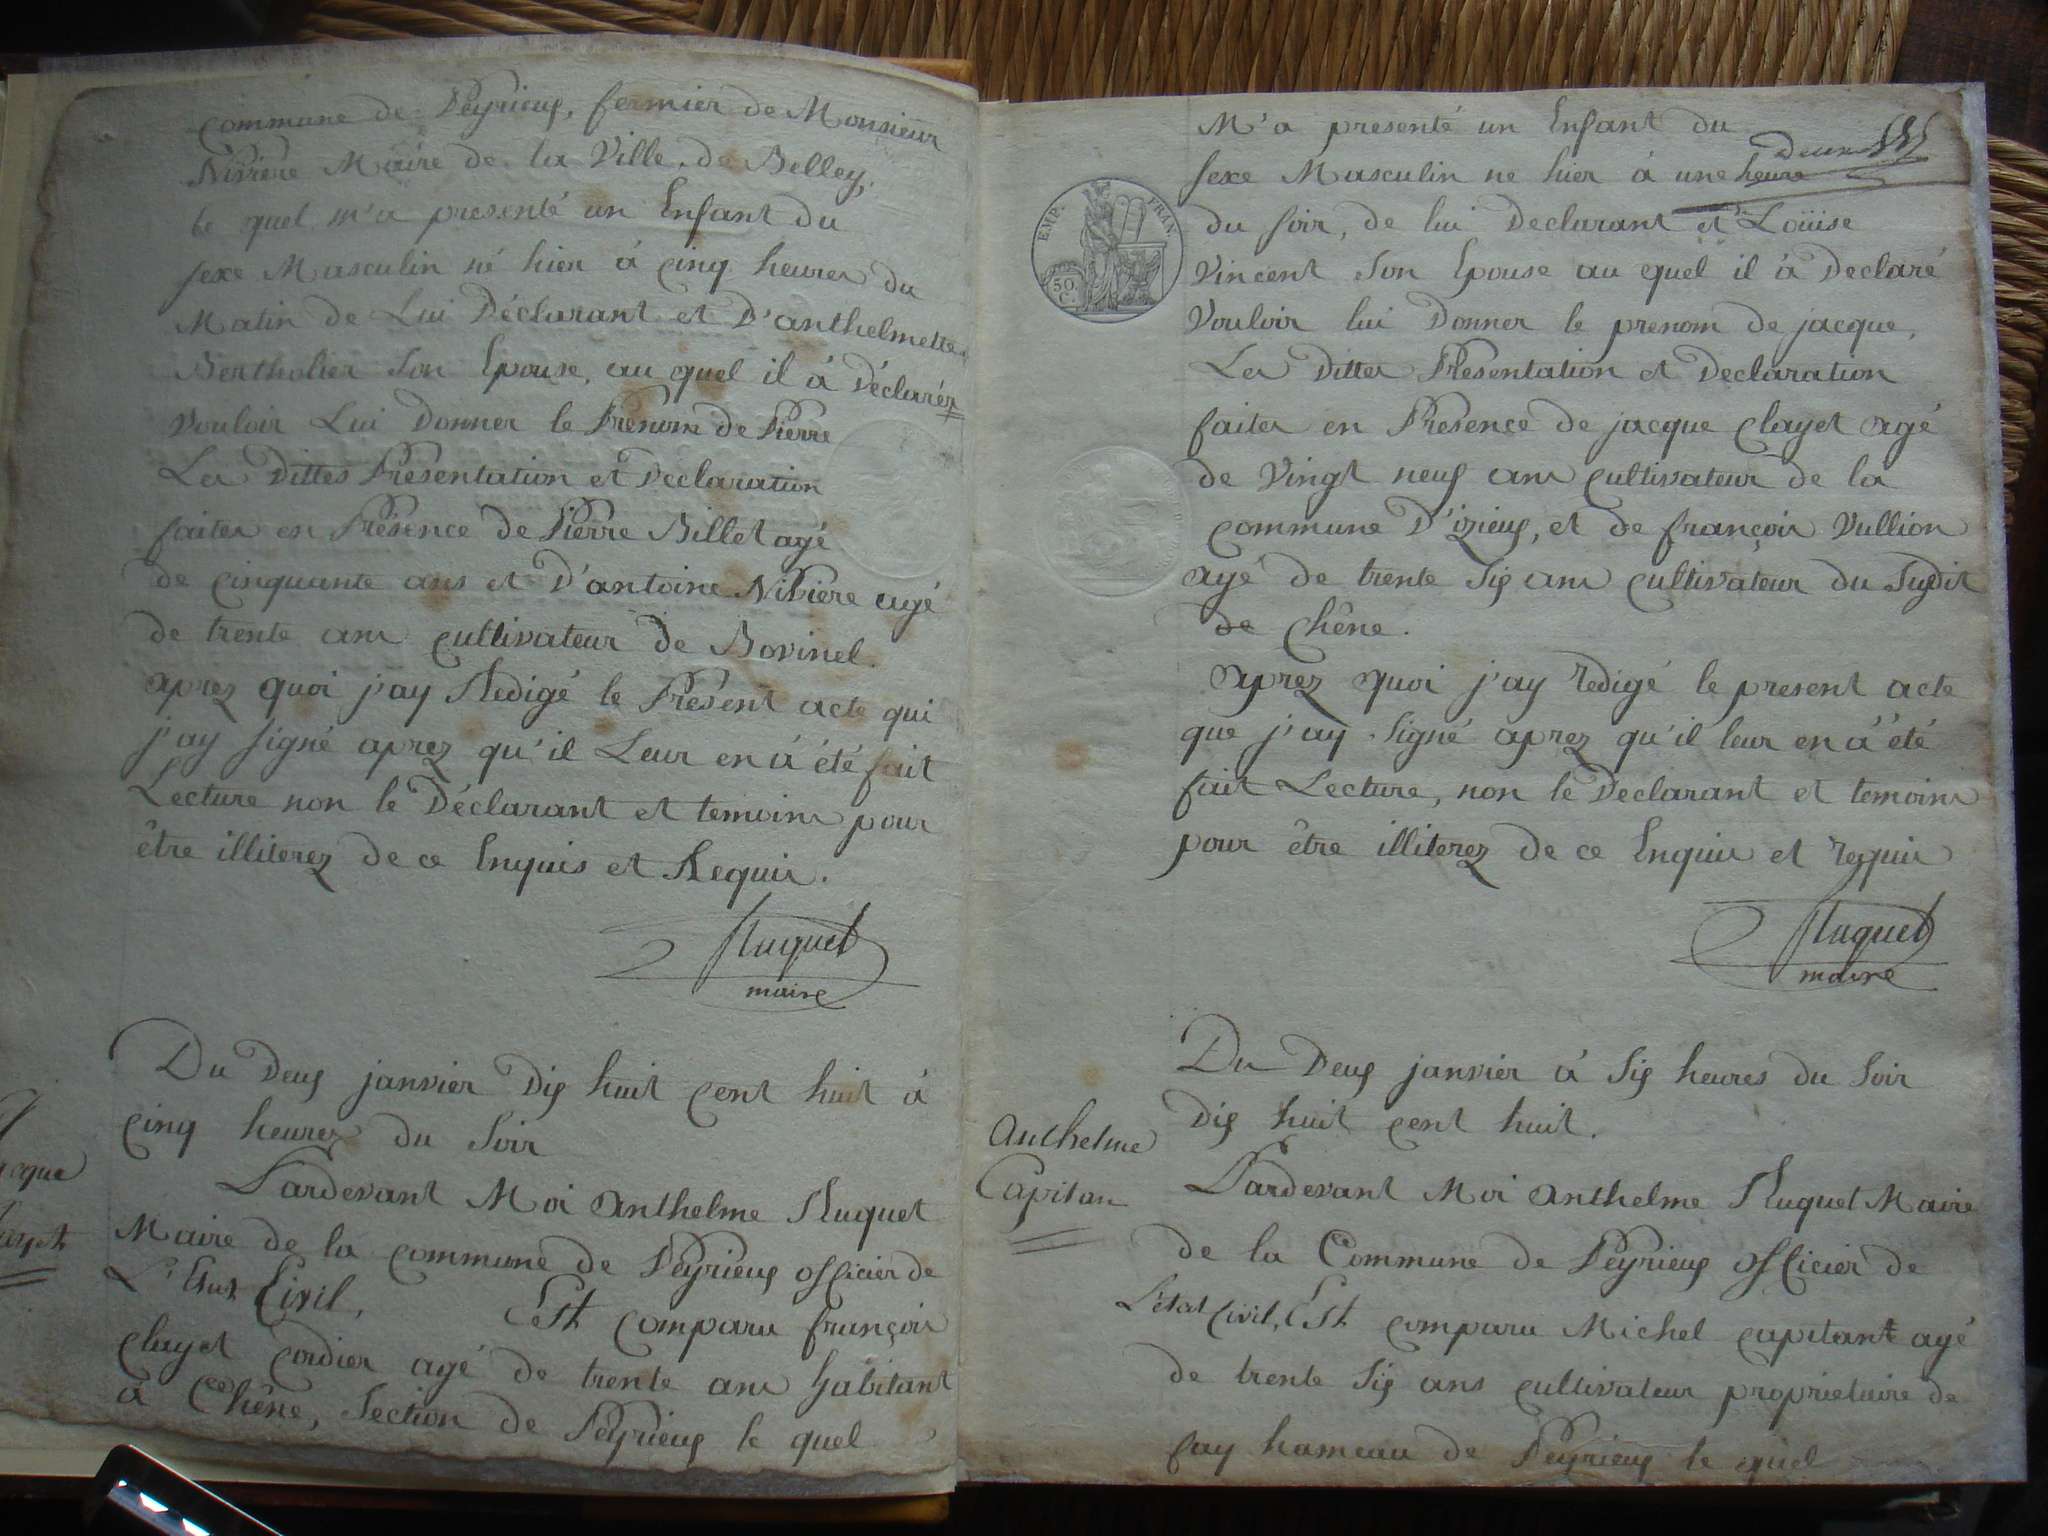 commune de Peyrieux, fermier de Monsieur
Nivière Maire de la Ville de Belley,
le quel m'a presenté un Enfant du
sexe Masculin né hier à cinq heures du
Matin de Lui Déclarant et D'anthelmette
Bertholier son Epouse, au quel il à Déclarér
Vouloir Lui Donner le Prenom de Pierre
Les Dittes Présentation et Declaration
faites en Présence de Pierre Billet agé
de cinquante ans et D'antoine Nivière agé
de trente ans cultivateur de Bovinel.
aprez quoi j'ay Redigé le Présent acte qui
j'ay signé aprez qu'il Leur en à été fait
Lecture non le Déclarant et temoins pour
être illiterez de ce Enquis et Requis.
Ruquet
maire
Du Deux janvier Dix huit cent huit à
cinq heures du soir
Pardevant Moi anthelme Ruquet
Maire de la commune de Peyrieux officier de
L'Etat Civil, Est comparu françois
clayet cordier agé de trente ans habitant
a Chêne, section de Peyrieux le quel
M'a presenté un Enfant du
sexe Masculin ne hier à une heure
deux
du soir, de lui Declarant et de Loüise
Vincent son Epouse au quel il à Declaré
Vouloir lui Donner le prenom de jacque,
Les Dittes Présentation et Declaration
faites en Presence de jacque clayet agé
de Vingt neuf ans cultivateur de la
commune D'izieux, et de françois Vullion
agé de trente six ans cultivateur du susdit
de Chêne.
aprez quoi j'ay redigé le present acte
que j'ay signé aprez qu'il leur en à été
fait Lecture, non le Declarant et temoins
pour être illiterez de ce Enquis et requis
Ruquet
maire
EMP. FRAN.
50.
C.
Du Deux janvier à six heures du soir
Dix huit cent huit.
Anthelme
Capitan
Pardevant Moi anthelme Ruquet Maire
de la Commune de Peyrieux officier de
L'état civil, Est comparu Michel capitant agé
de trente six ans cultivateur proprietaire de
fay hameau de Peyrieux le quel